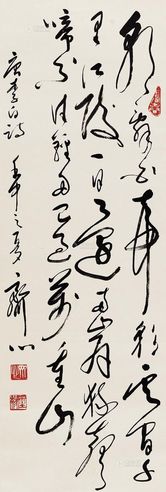 朝辭白帝彩雲間千
里江陵一日還兩岸猿聲
啼不住輕舟已過萬重山
唐李白詩 壬申之夏 齊心